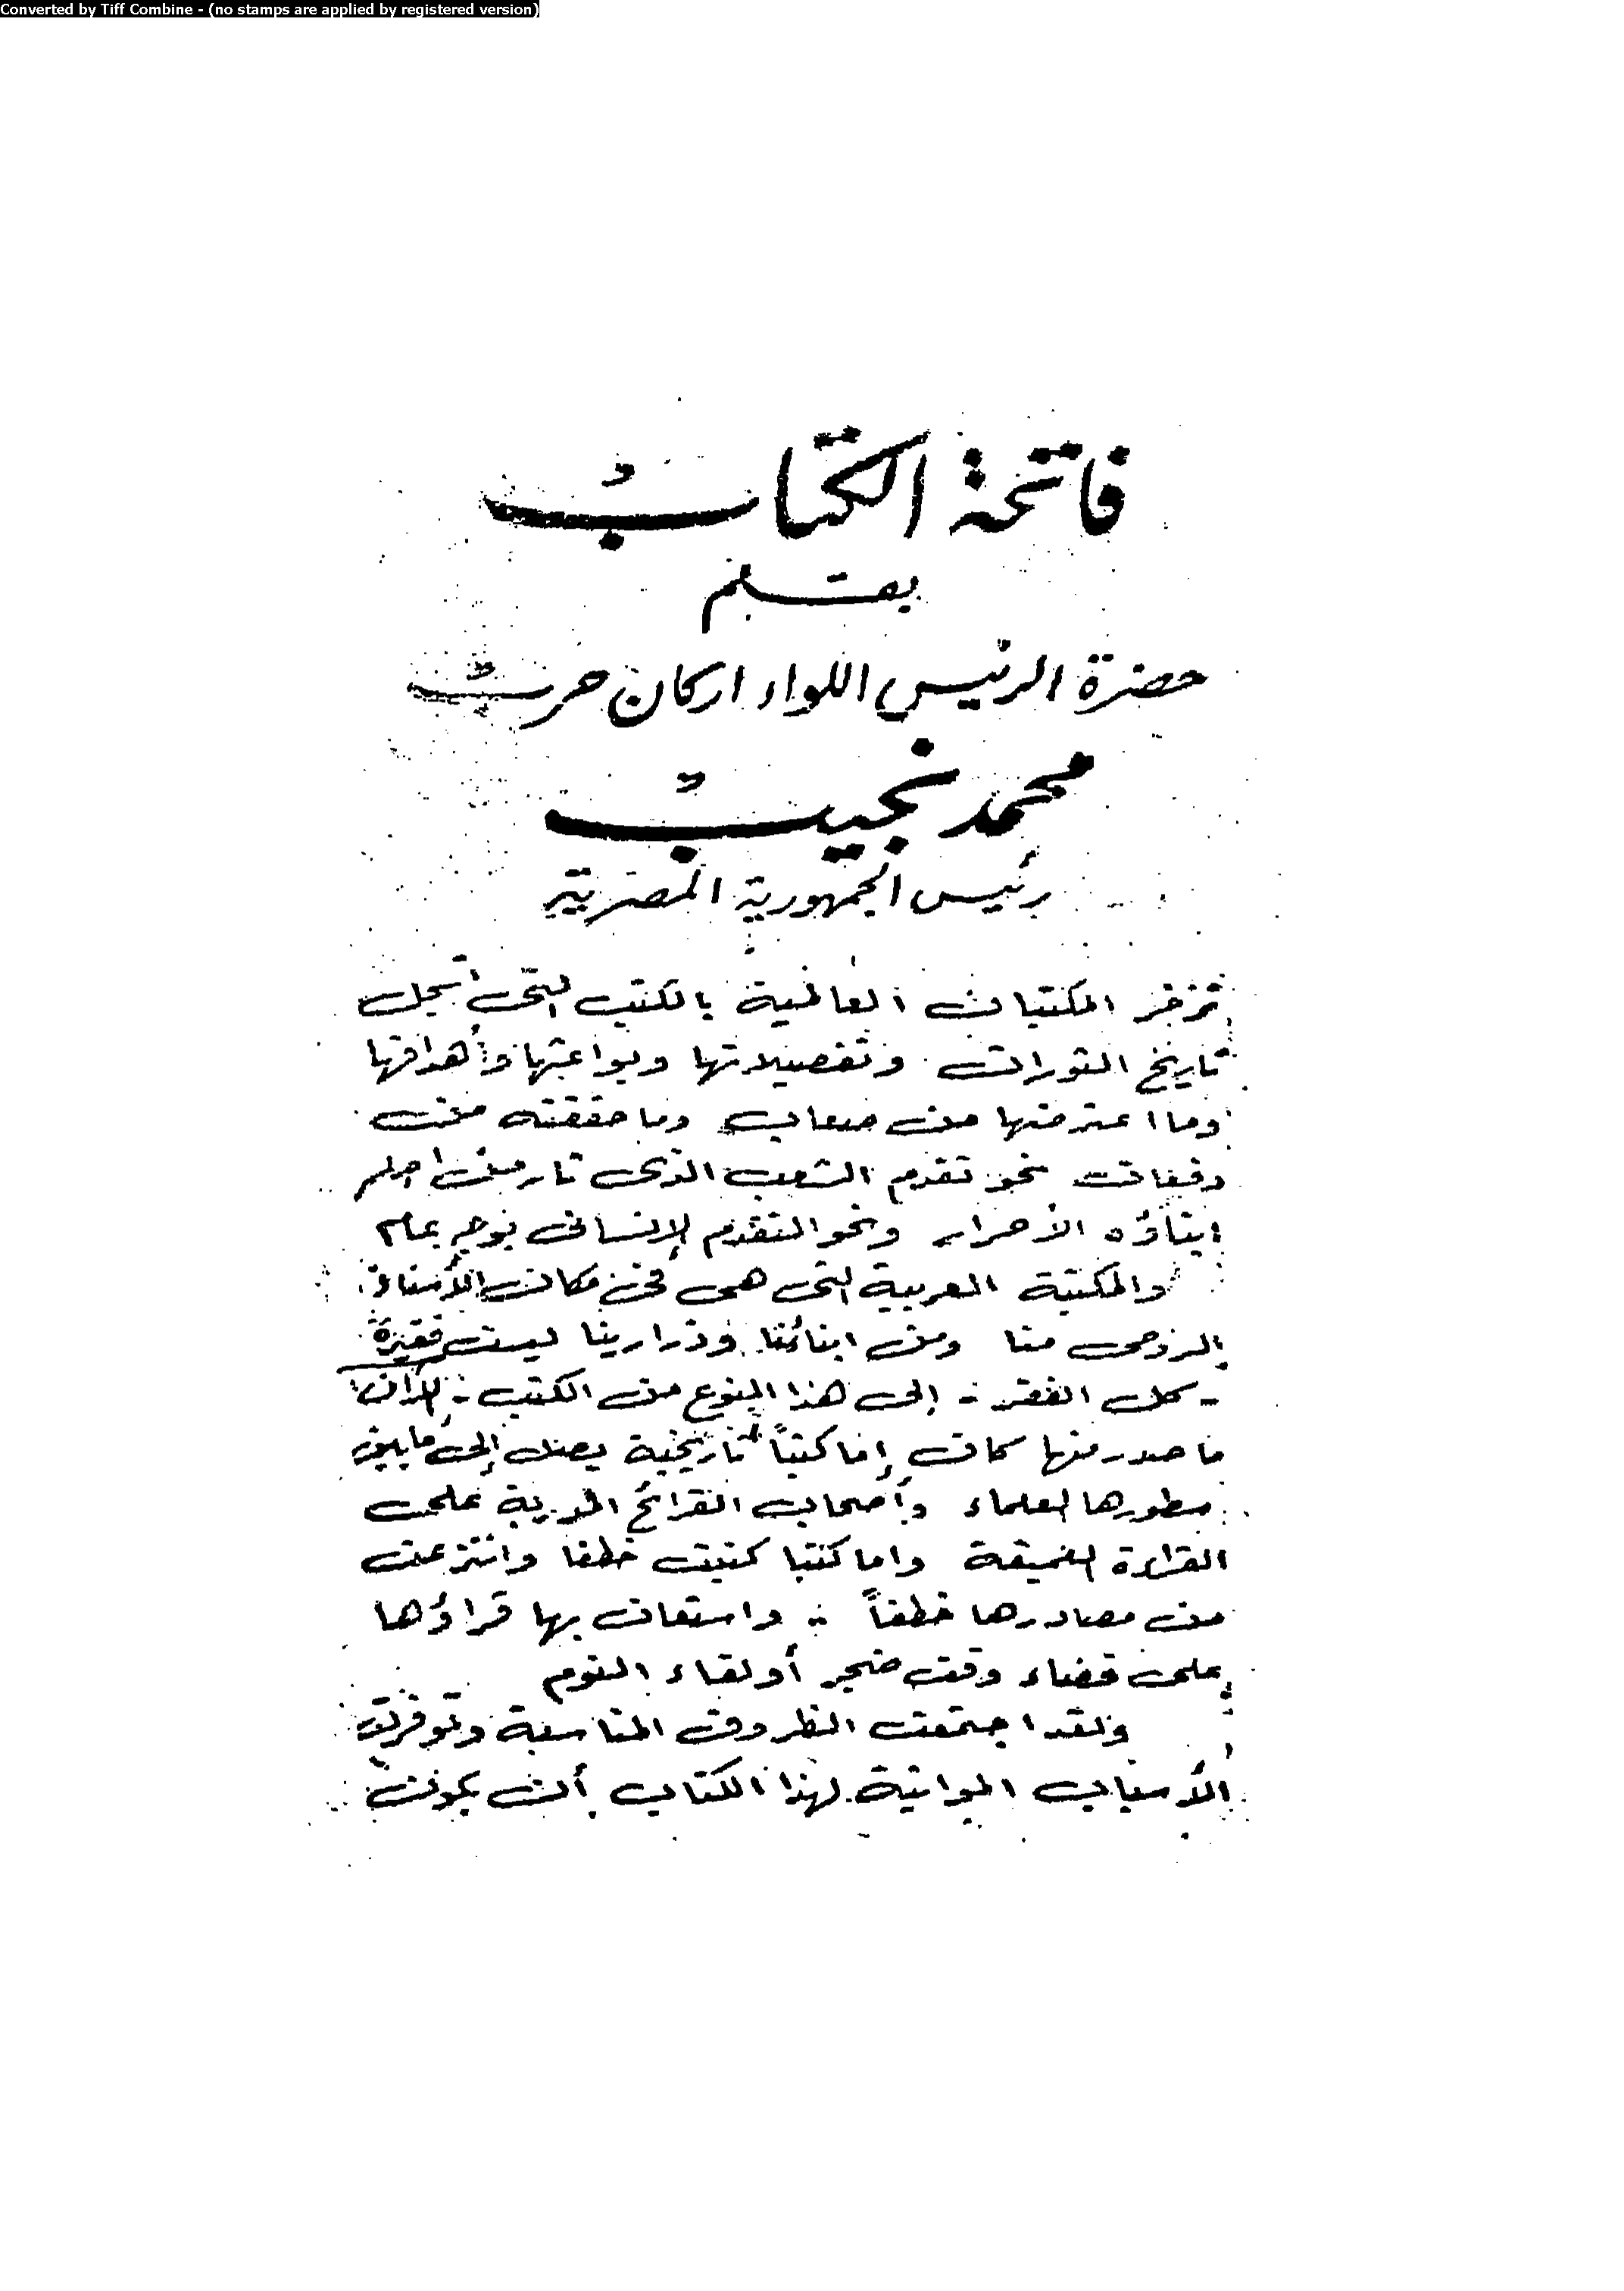 Converted by Tiff Combine - (no stamps are applied by registered version)
فاتحة الكتاب
بقلم
حضرة الرئيس اللواء اركان حرب
محمد نجيب
رئيس الجمهورية المصرية
تزخر المكتبات العالمية بالكتب التى تسجل
تاريخ الثورات وتفصيلاتها وبواعثها وأهدافها
وما اعترضها من صعاب وما حققته من
دفعات نحو تقدم الشعب الذى ثار من اجلم
ابناؤه الأحرار ونحو التقدم الإنسانى بوجه عام
والمكتبة العربية التى هى فى مكان الأستاذ
الروحى منا ومن ابنائنا وذرارينا ليست فقيرة
- كل الفقر - إلى هذا النوع من الكتب - إلا أن
ما صدر منها كان إما كتباً تاريخية يصل إلى ما بين
سطورها العلماء وأصحاب القرائح المدربة على
القراءة العميقة واما كتبا كتبت خطفا وانتزعت
من مصادرها خطفاً - واستعان بها قراؤها
على قضاء وقت ضجر أو لقاء النوم
ولقد اجتمعت الظروف المناسبة وتوفرت
الأسباب المواتية لهذا الكتاب أن يكون